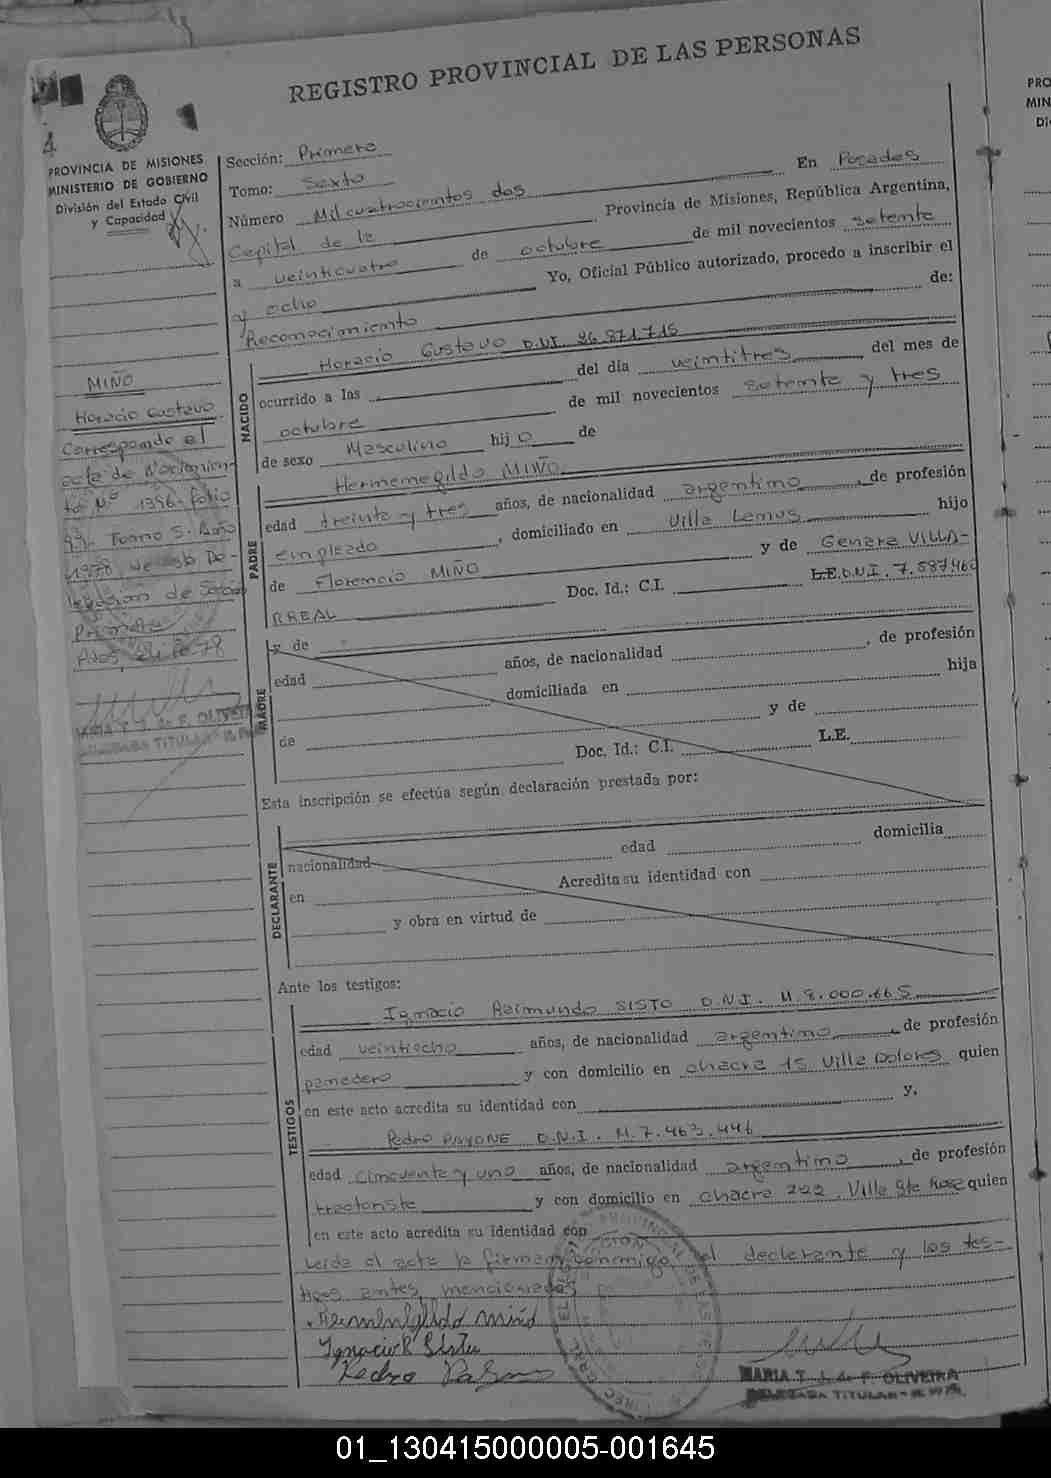 REGISTRO PROVINCIAL DE LAS PERSONAS
PROVINCIA DE MISIONES
MINISTERIO DE GOBIERNO
División del Estado Civil
y Capacidad
Sección: Primera
Tomo: Sexto
Número Mil cuatrocientos dos En Posadas
Capital de la Provincia de Misiones, República Argentina,
a veinticuatro de octubre de mil novecientos setenta
y ocho Yo, Oficial Público autorizado, procedo a inscribir el
Reconocimiento de:
NACIDO
Horacio Gustavo D.N.I. 26.871.715
ocurrido a las del día veintitres del mes de
octubre de mil novecientos setenta y tres
de sexo Masculino hijo de
PADRE
Hermenegildo MIÑO
edad treinta y tres años, de nacionalidad argentino, de profesión
empleado, domiciliado en Villa Lemus hijo
de Florencio MIÑO y de Genara VILLA-
RREAL Doc. Id.: C.I. L.E. D.N.I. 7.587.460
MADRE
y de
edad años, de nacionalidad, de profesión
domiciliada en hija
de y de
Doc. Id.: C.I. L.E.
Esta inscripción se efectúa según declaración prestada por:
DECLARANTE
nacionalidad edad domicilia
en Acredita su identidad con
y obra en virtud de
Ante los testigos:
TESTIGOS
Ignacio Raimundo SISTO D.N.I. M.8.000.665
edad veintiocho años, de nacionalidad argentino, de profesión
panadero y con domicilio en chacra 15 Villa Dolores quien
en este acto acredita su identidad con y,
Pedro PAYONE D.N.I. M.7.463.446
edad cincuenta y uno años, de nacionalidad argentino, de profesión
tractorista y con domicilio en chacra 222. Villa Sta Rosa quien
en este acto acredita su identidad con
Leída el acta la firman conmigo, el declarante y los tes-
tigos antes mencionados
Hermenegildo Miño
Ignacio R Sisto
Pedro
MARIA T. J. de F. OLIVEIRA
DELEGADA TITULAR
MIÑO
Horacio Gustavo
Corresponde al
acta de Nacimien
to Nº 1396 folio
99 Tomo 5. Año
1978, de esta De-
legación de Sección
Primera
Pdas, 24-10-78
MARIA T. J. de F. OLIVEIRA
DELEGADA TITULAR
01_130415000005-001645